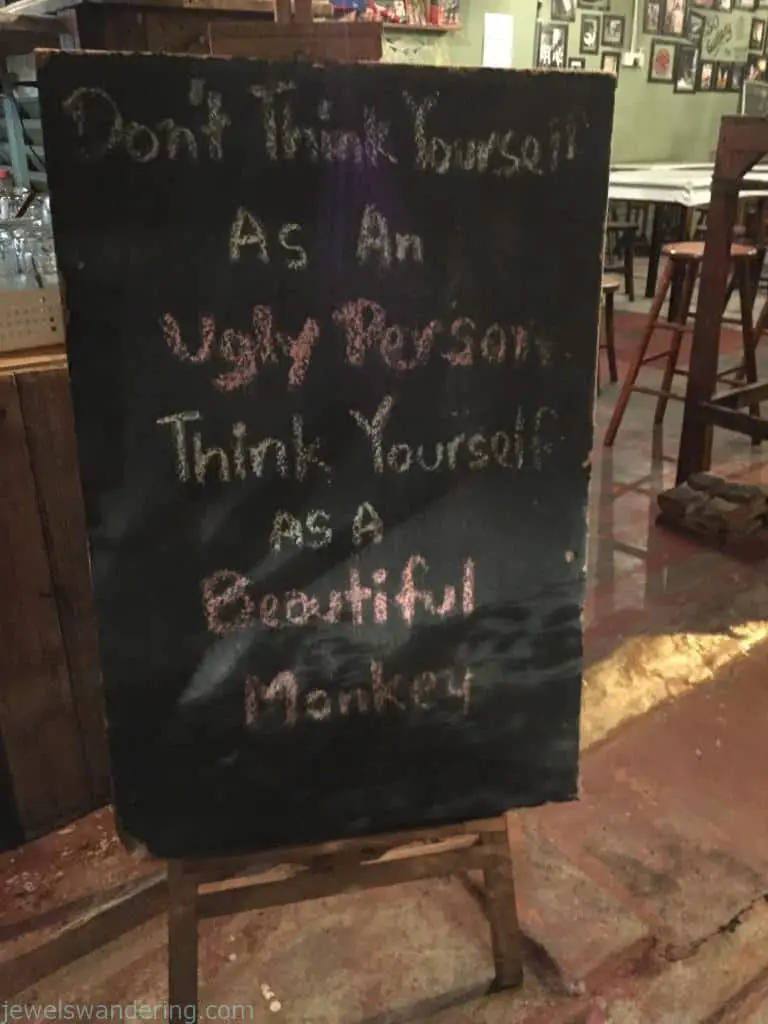 Don't Think Yourself
As An
Ugly Person
Think Yourself
As A
Beautiful
Monkey
jewelswandering.com